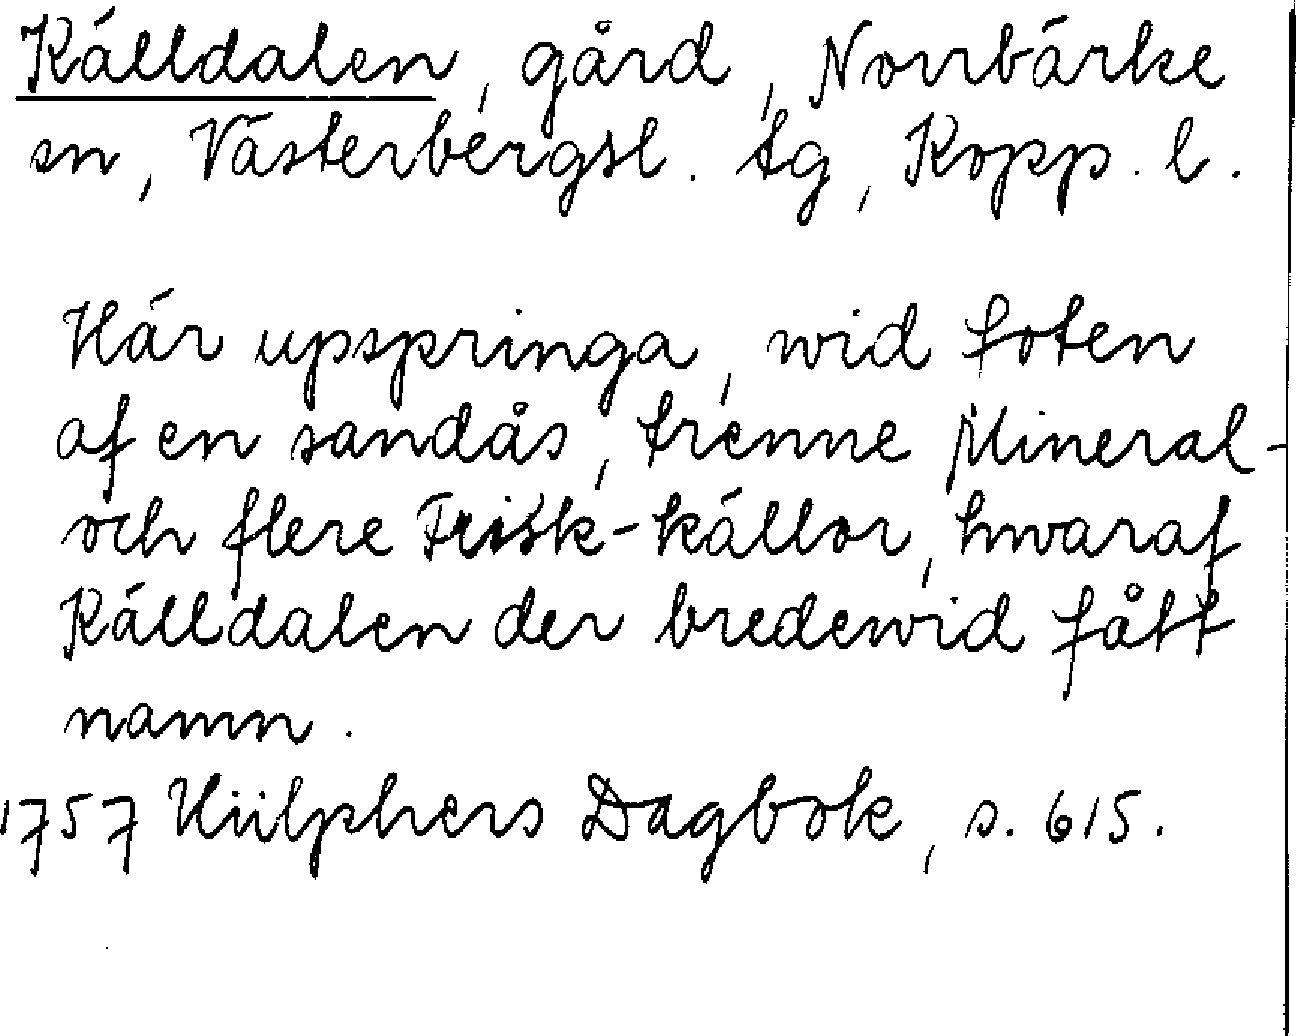 Källdalen, gård, Norrbärke
sn, Västerbergsl. tg, Kopp. l.
Här upspringa, wid foten
af en sandås, trenne Mineral-
och flere Frisk-källor, hwaraf
Källdalen der bredewid fått
namn.
1757 Hülphers Dagbok, s. 615.